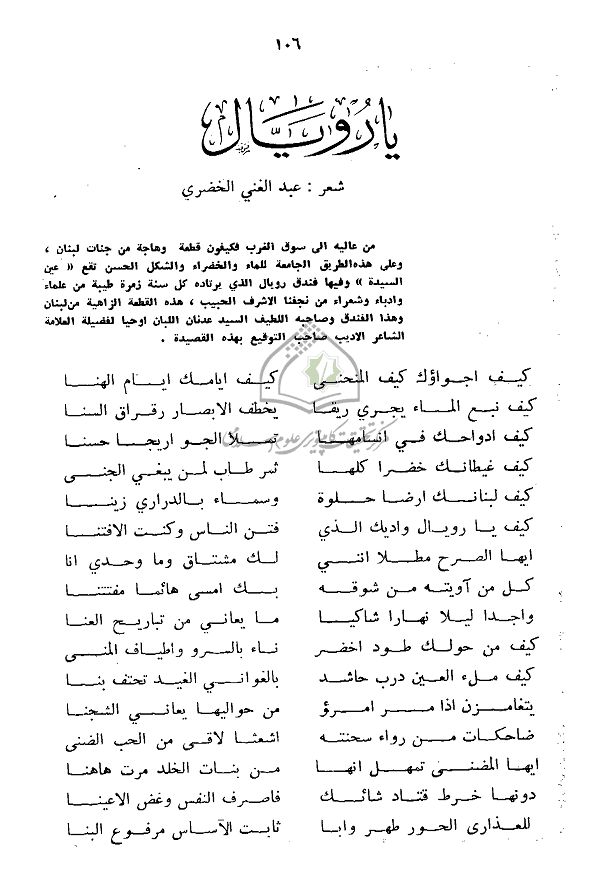 ١٠٦
يا رُويَال
شعر : عبد الغني الخضري
من عاليه الى سوق الغرب فكيفون قطعة وهاجة من جنات لبنان ،
وعلى هذه الطريق الجامعة للماء والخضراء والشكل الحسن تقع « عين
السيدة » وفيها فندق رويال الذي يرتاده كل سنة زمرة طيبة من علماء
وادباء وشعراء من نجفنا الاشرف الحبيب ، هذه القطعة الزاهية من لبنان
وهذا الفندق وصاحبه اللطيف السيد عدنان اللبان اوحيا لفضيلة العلامة
الشاعر الاديب صاحب التوقيع بهذه القصيدة .
كيف اجواؤك كيف المنحنى كيف ايامك ايام الهنا
كيف نبع الماء يجري ريقا يخطف الابصار رقراق السنا
كيف ادواحك في تملا الجو اريجا حسنا
كيف غيطانك خضرا كلها ثمر طاب لمن يبغي الجنى
كيف لبنانك ارضا حلوة وسماء بالدراري زينا
كيف يا رويال واديك الذي فتن الناس وكنت الافتنا
ايها الصرح مطلا انني لك مشتاق وما وحدي انا
كل من آويته من شوقه بك امسى هائما مفتتنا
واجدا ليلا نهارا شاكيا ما يعاني من تباريح العنا
كيف من حولك طود اخضر ناء بالسرو واطياف المنى
كيف ملء العين درب حاشد بالغواني الغيد تحتف بنا
يتغامزن اذا مر امرؤ من حواليها يعاني الشجنا
ضاحكات من رواء سحنته اشعثا لاقى من الحب الضنى
ايها المضنى تمهل انها من بنات الخلد مرت هاهنا
دونها خرط قتاد شائك فاصرف النفس وغض الاعينا
للعذارى الحور طهر وابا ثابت الآساس مرفوع البنا